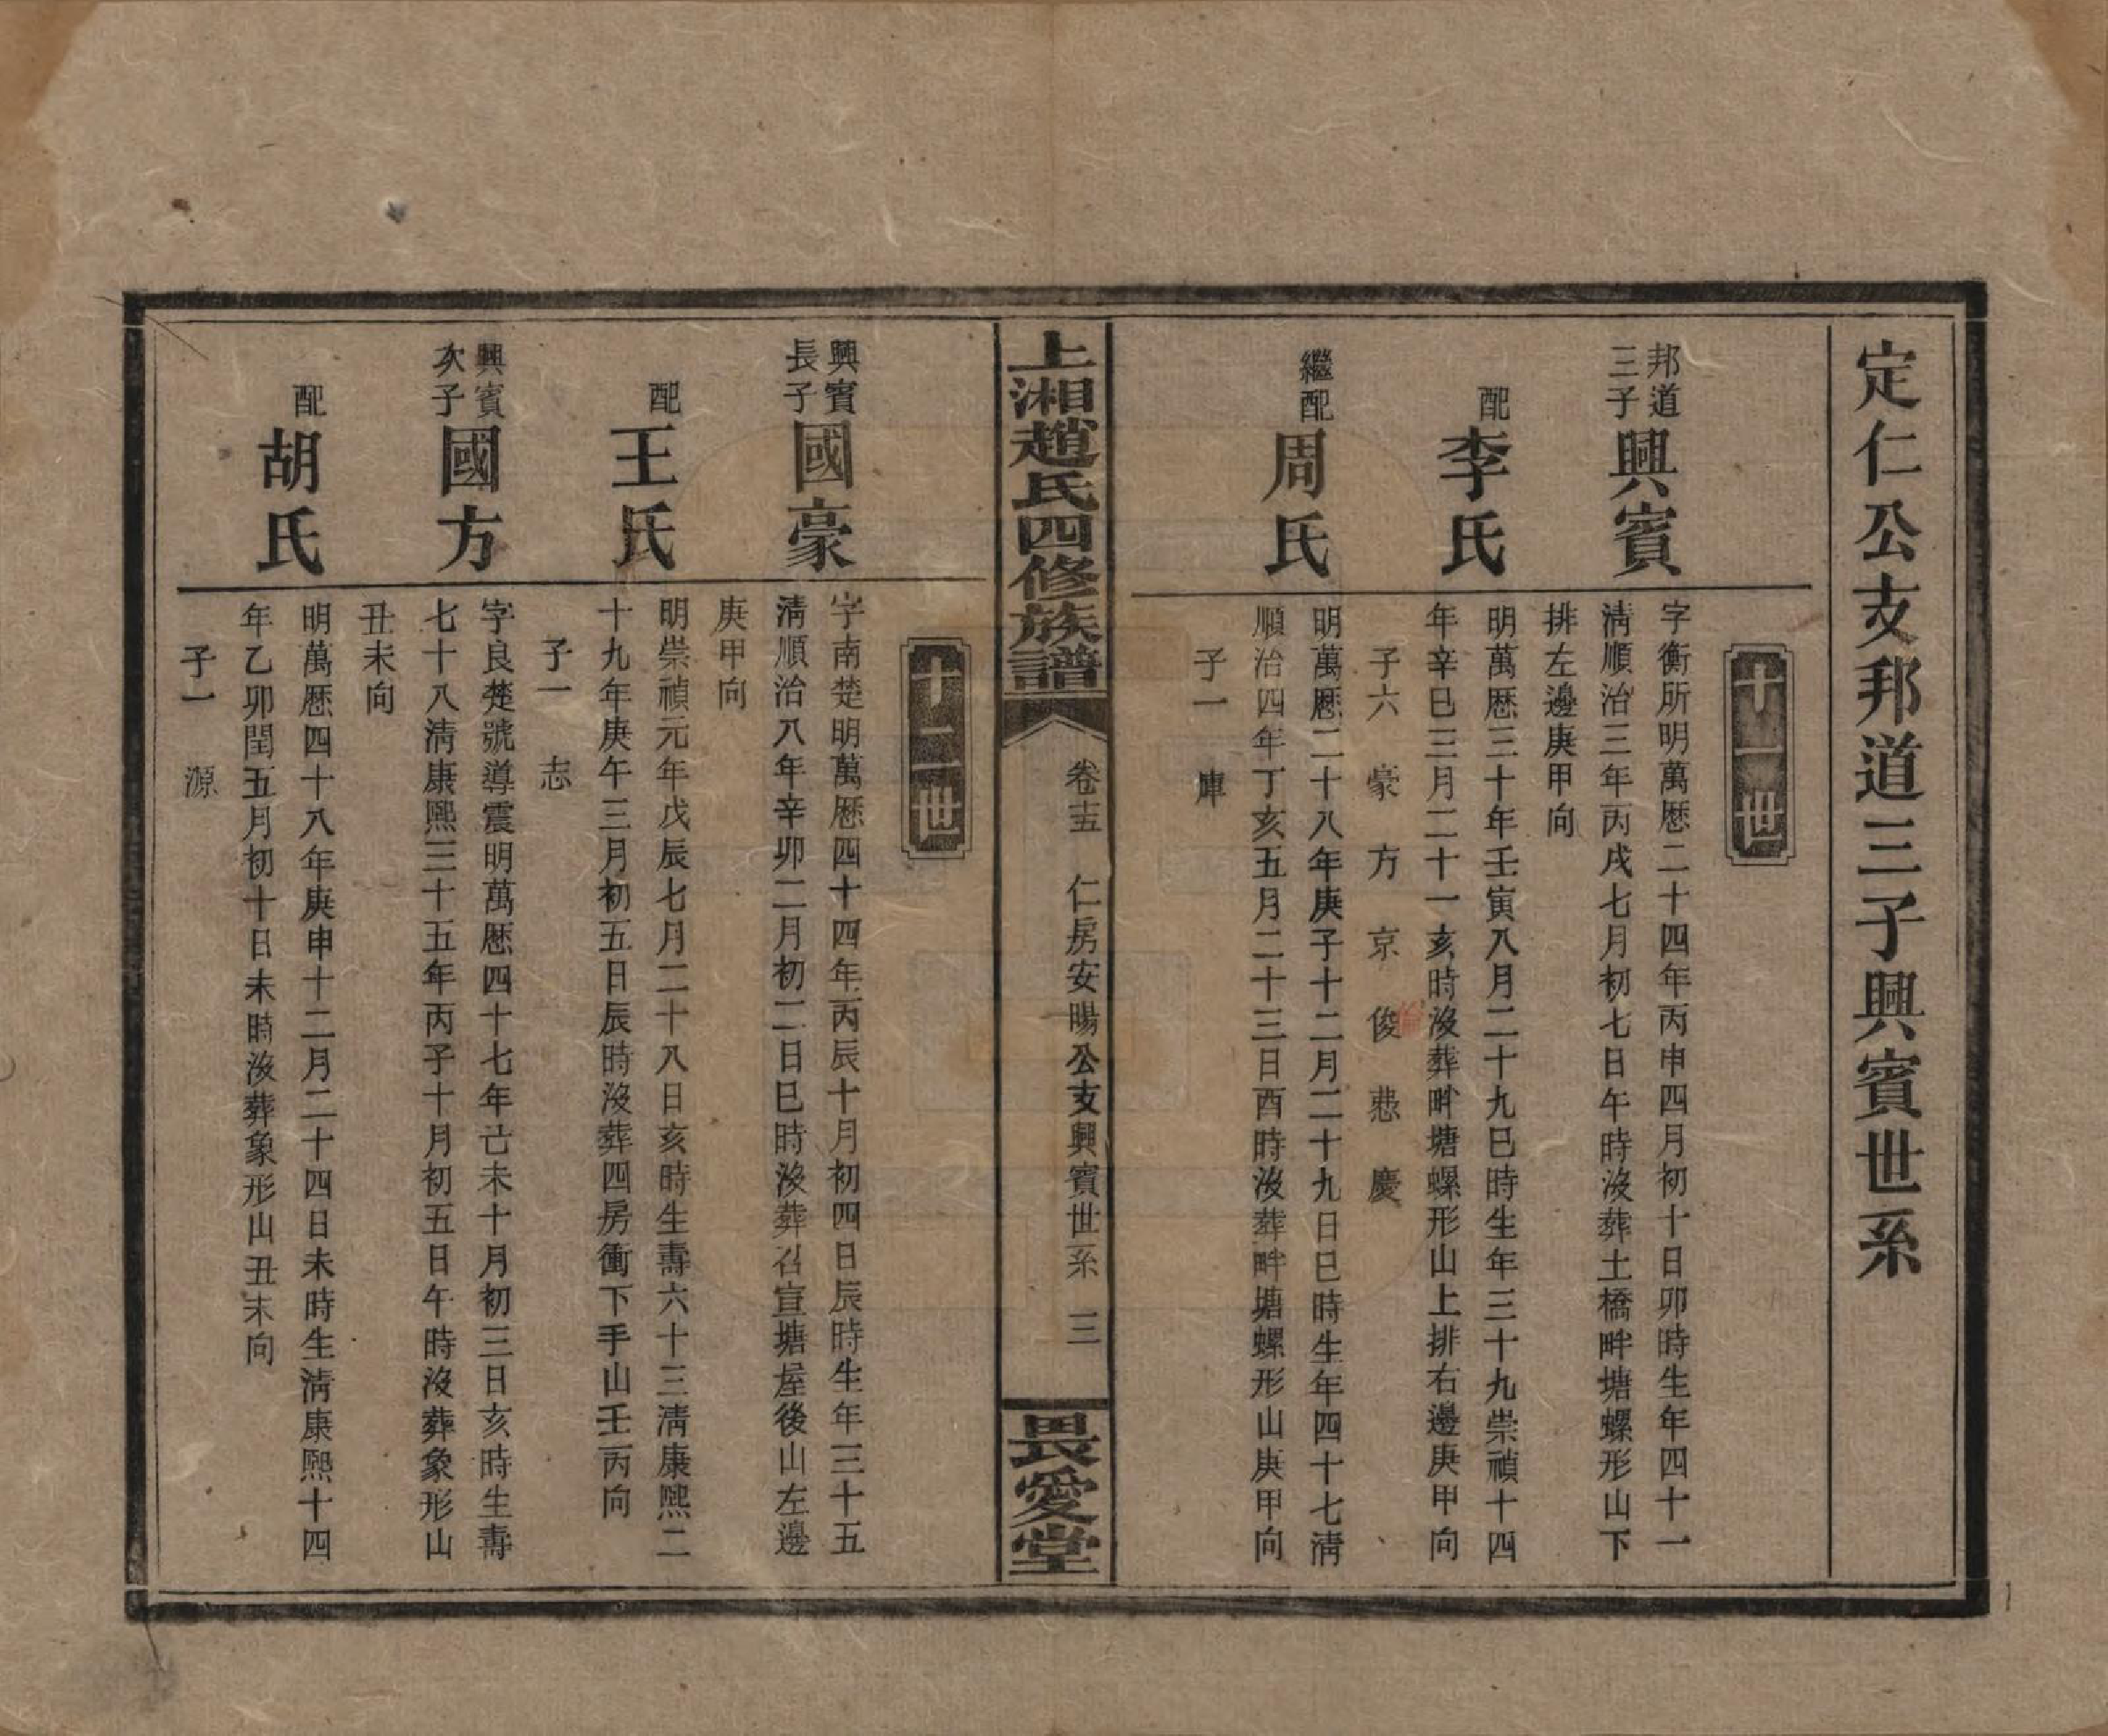 定仁公支邦道三子興賓世系
十一世
邦道
三子
興賓
字衡所明萬歷二十四年丙申四月初十日卯時生年四十一
清順治三年丙戌七月初七日午時沒葬土橋畔塘螺形山下
排左邊庚甲向
配
李氏
明萬歷三十年壬寅八月二十九巳時生年三十九崇禎十四
年辛巳三月二十一亥時沒葬畔塘螺形山上排右邊庚甲向
子六 豪 方 京 俊 悲 慶
繼配
周氏
明萬歷二十八年庚子十二月二十九日巳時生年四十七清
順治四年丁亥五月二十三日酉時沒葬畔塘螺形山庚甲向
子一 庫
上湘趙氏四修族譜
卷十五 仁房安暘公支興賓世系 三
畏愛堂
十二世
興賓
長子
國豪
字南楚明萬歷四十四年丙辰十月初四日辰時生年三十五
清順治八年辛卯二月初二日巳時沒葬召宣塘屋後山左邊
庚甲向
配
王氏
明崇禎元年戊辰七月二十八日亥時生壽六十三清康熙二
十九年庚午三月初五日辰時沒葬四房衝下手山壬丙向
子一 志
興賓
次子
國方
字良楚號導震明萬歷四十七年己未十月初三日亥時生壽
七十八清康熙三十五年丙子十月初五日午時沒葬象形山
丑未向
配
胡氏
明萬歷四十八年庚申十二月二十四日未時生清康熙十四
年乙卯閏五月初十日未時沒葬象形山丑未向
子一 源